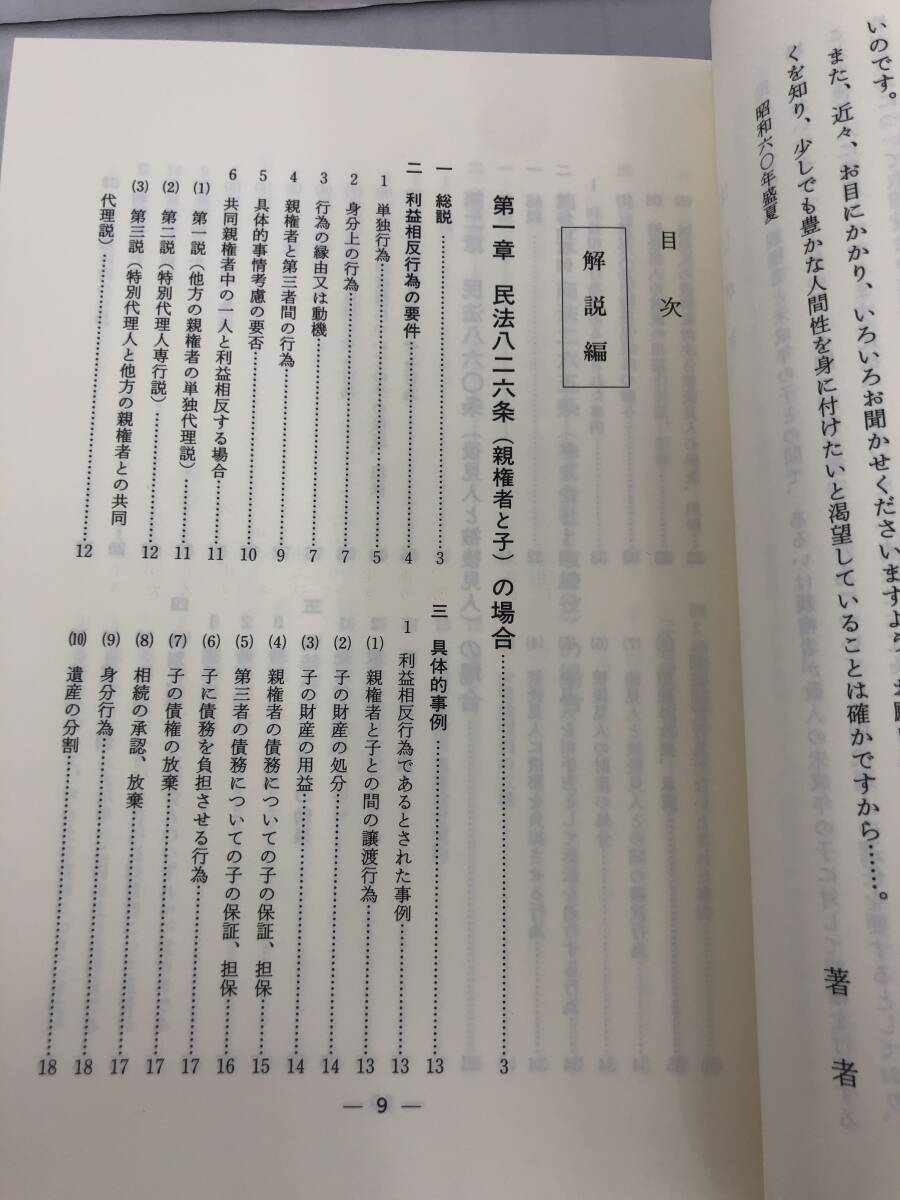 いのです。
また、近々、お目にかかり、いろいろお聞かせくださいますよう、お願い
くを知り、少しでも豊かな人間性を身に付けたいと渇望していることは確かですから……。
昭和六〇年盛夏
著者
目次
解説編
第一章 民法八二六条（親権者と子）の場合……3
一 総説……3
二 利益相反行為の要件……4
1 単独行為……5
2 身分上の行為……7
3 行為の縁由又は動機……7
4 親権者と第三者間の行為……9
5 具体的事情考慮の要否……10
6 共同親権者中の一人と利益相反する場合……11
(1) 第一説（他方の親権者の単独代理説）……11
(2) 第二説（特別代理人専行説）……12
(3) 第三説（特別代理人と他方の親権者との共同
代理説）……12
三 具体的事例……13
1 利益相反行為であるとされた事例……13
(1) 親権者と子との間の譲渡行為……13
(2) 子の財産の処分……14
(3) 子の財産の用益……14
(4) 親権者の債務についての子の保証、担保……15
(5) 第三者の債務についての子の保証、担保……16
(6) 子に債務を負担させる行為……17
(7) 子の債権の放棄……17
(8) 相続の承認、放棄……17
(9) 身分行為……18
(10) 遺産の分割……18
— 9 —